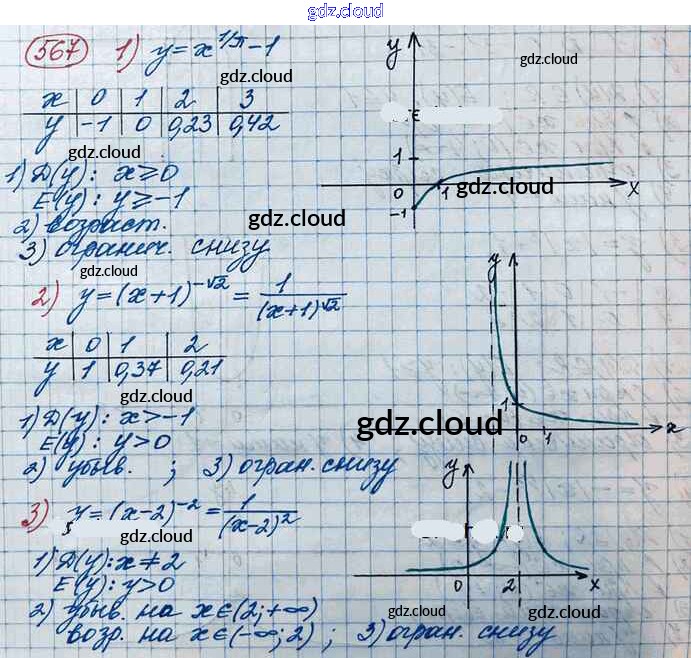 gdz.cloud
567 1) y = x^{1/π} - 1
gdz.cloud
x | 0 | 1 | 2 | 3
y | -1 | 0 | 0,23 | 0,42
gdz.cloud
1) D(y): x ≥ 0
E(y): y ≥ -1
2) возраст.
3) огранич. снизу
gdz.cloud
y
1
0 1 x
-1
gdz.cloud
2) y = (x+1)^{-√2} = 1/(x+1)^{√2}
gdz.cloud
x | 0 | 1 | 2
y | 1 | 0,37 | 0,21
gdz.cloud
1) D(y): x > -1
E(y): y > 0
2) убыв. ; 3) огран. снизу
y
1
0 1 x
gdz.cloud
3) y = (x-2)^{-2} = 1/(x-2)^2
gdz.cloud
1) D(y): x ≠ 2
E(y): y > 0
2) убыв. на x ∈ (2; +∞)
возр. на x ∈ (-∞; 2) ; 3) огран. снизу
y
0 2 x
gdz.cloud